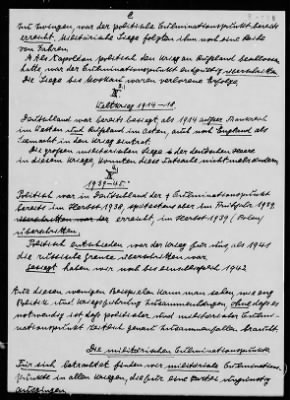 2
Auf Zwingen, war der politische Culminationspunkt bereits
erreicht. Militärische Siege folgten ihm noch eine Reihe
von Jahren.
Als Napoleon politisch den Krieg an Russland beschlossen
hatte war der Culminationspunkt endgültig überschritten.
Die Siege bis Moskau waren verlorene Erfolge.
Weltkrieg 1914-18.
Deutschland war bereits besiegt, als 1914 außer Frankreich
im Westen und Russland im Osten, auch noch England als
Seemacht in den Krieg eintrat.
Die großen militärischen Siege der deutschen Heere
in diesem Kriege, konnten diese Tatsache nicht mehr ändern.
1939-45.
Politisch war in Deutschland der Culminationspunkt
bereits im Herbst 1938, spätestens aber im Frühjahr 1939
erreicht, im Herbst 1939 (Polen)
überschritten.
Politisch entschieden war der Krieg für uns, als 1941
die russische Grenze überschritten war
besiegt haben wir noch bis 1942
Aus diesen wenigen Beispielen kann man sehen, wie eng
Politik und Kriegführung zusammenhängen, ohne daß es
notwendig ist daß politischer und militärischer Culmi-
nationspunkt zeitlich genau zusammenfallen braucht.
Die militärischen Culminationspunkte
Für sich betrachtet finden wir militärische Culminations-
punkte in allen Kriegen, die für eine Partei ungünstig
ausgingen